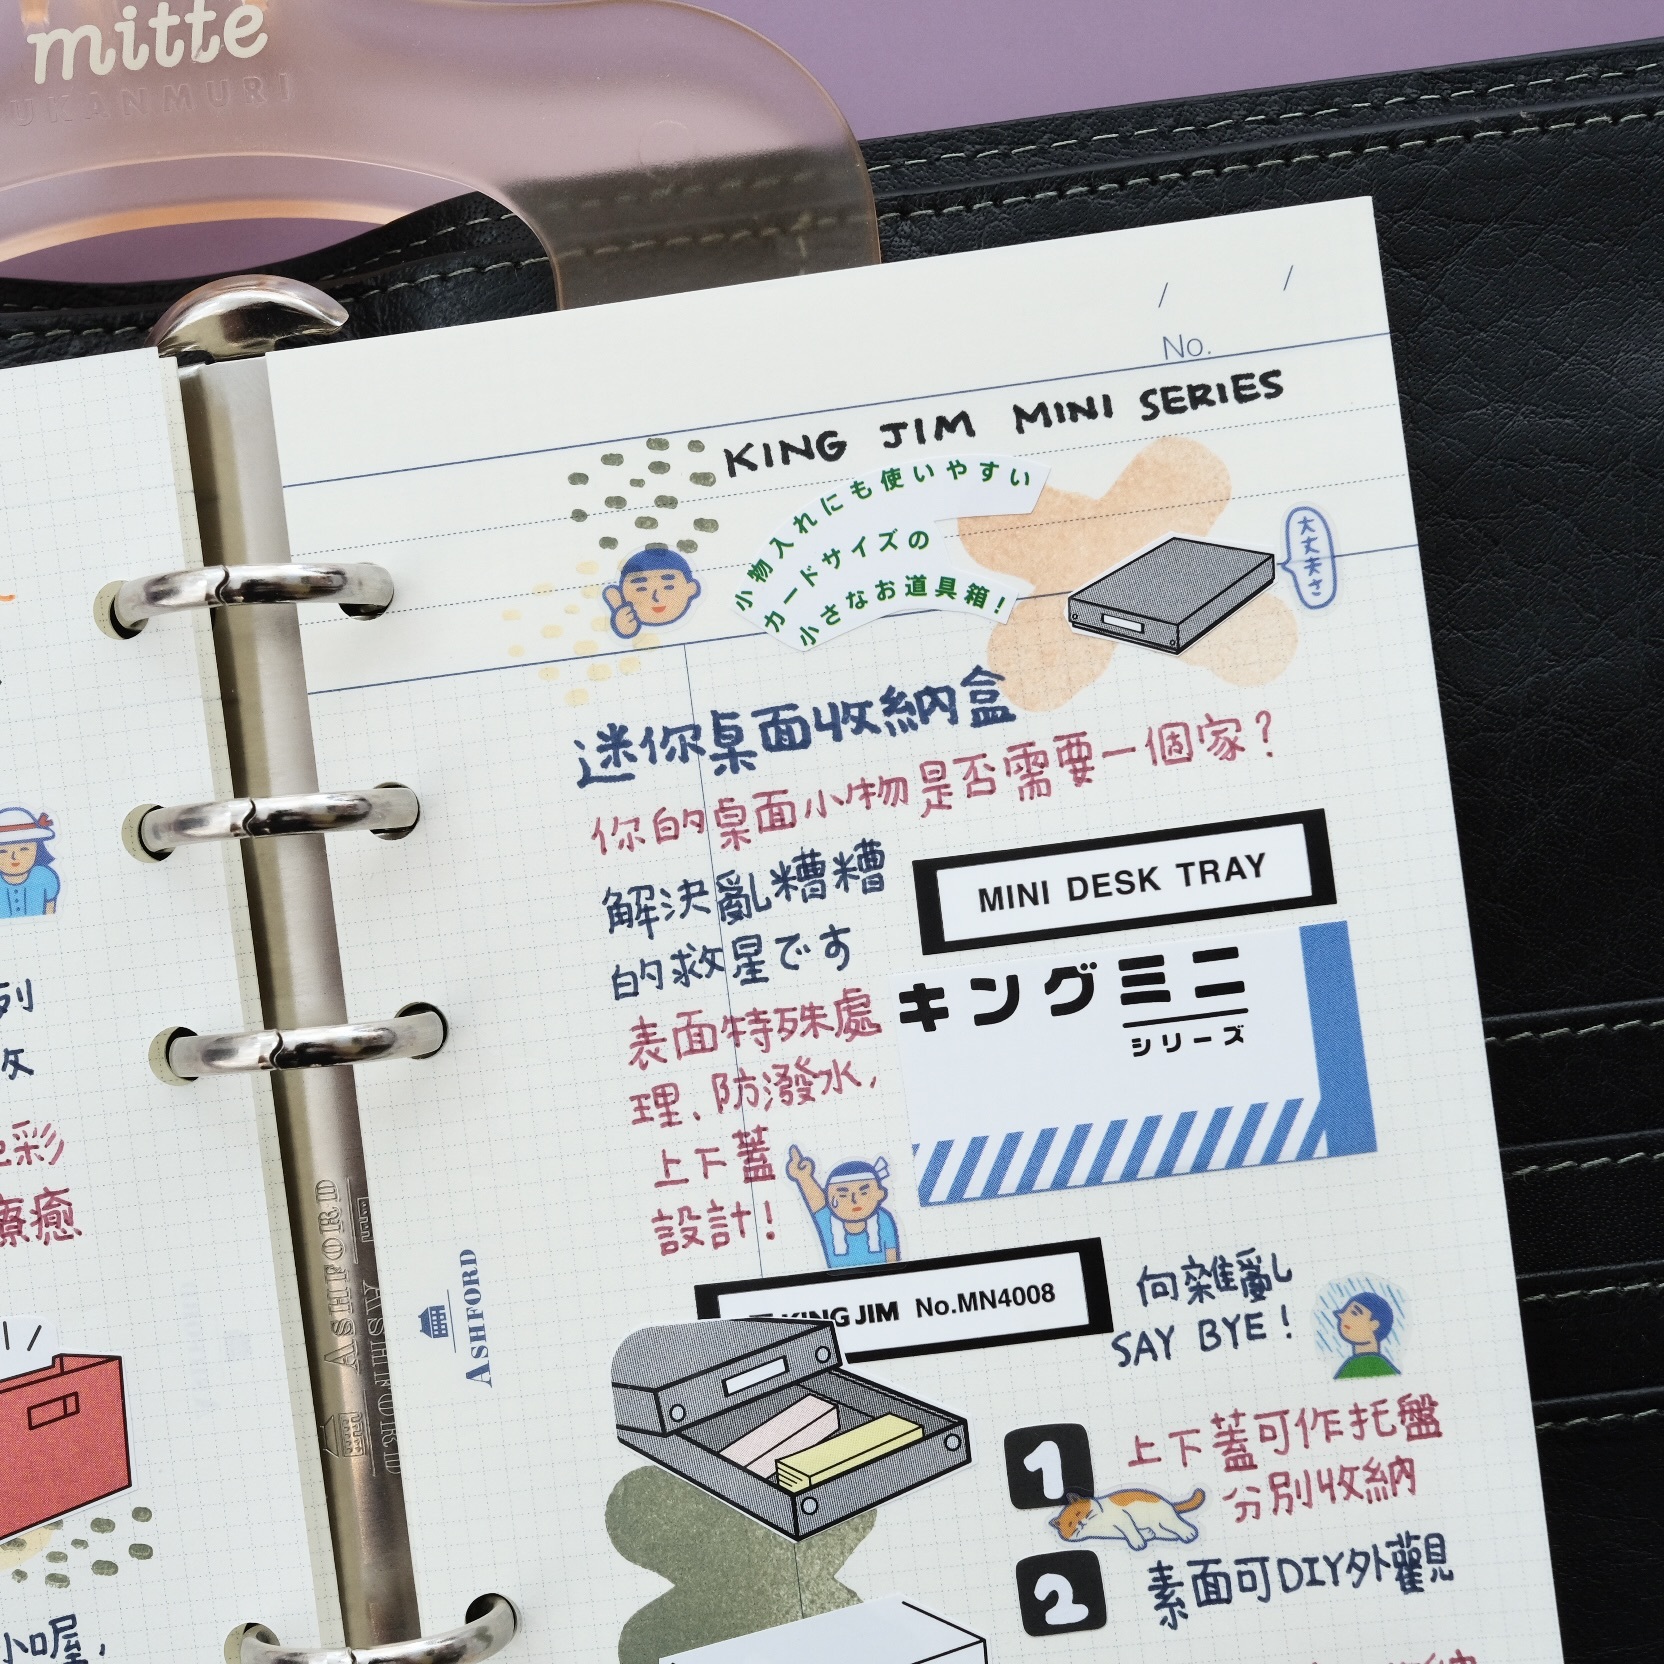 mitte
UKANMURI
No.
KING JIM MINI SERIES
小物入れにも使いやすい
カードサイズの
小さなお道具箱!
大丈夫さ
迷你桌面收納盒
你的桌面小物是否需要一個家?
解決亂糟糟
的救星です
MINI DESK TRAY
キングミニ
シリーズ
表面特殊處
理、防潑水,
上下蓋
設計!
KING JIM No.MN4008
向雜亂
SAY BYE!
1
上下蓋可作托盤
分別收納
2
素面可DIY外觀
ASHFORD
ASHFORD
ASHFORD
列
彩
療癒
小喔,